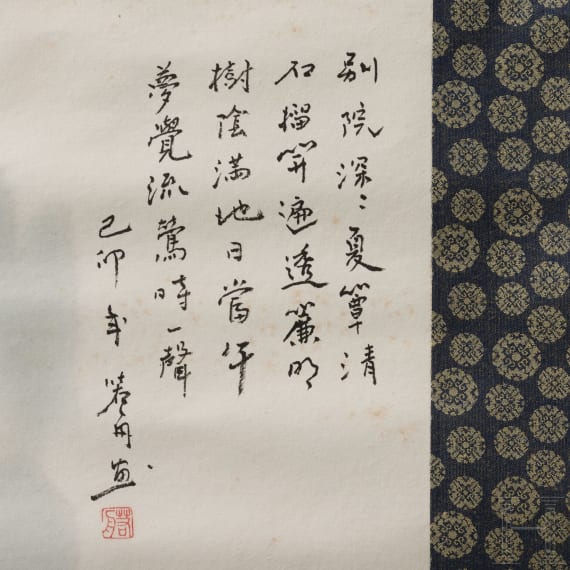 别院深〻夏簟清
石榴開遍透簾明
樹陰滿地日當午
夢覺流鶯時一聲
己卯年 画